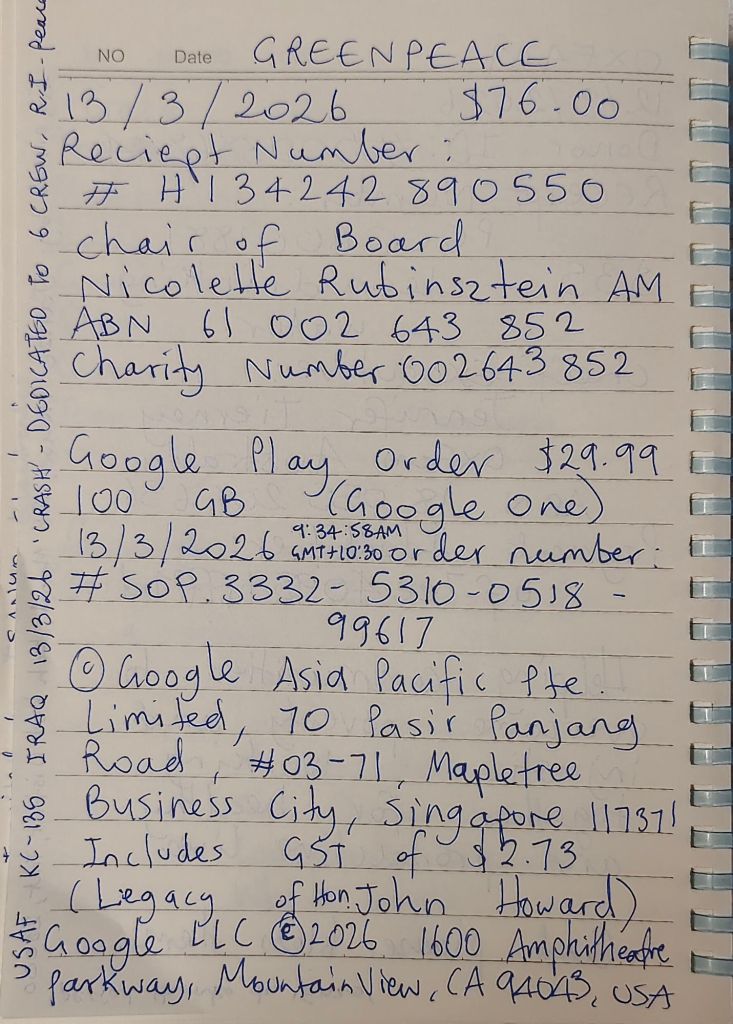 NO Date GREENPEACE
13/3/2026 $76.00
Reciept Number:
# H134242890550
Chair of Board
Nicolette Rubinsztein AM
ABN 61 002 643 852
Charity Number 002643852
Google Play Order $29.99
100 GB (Google One)
13/3/2026 9:34:58AM GMT+10:30 order number:
# SOP.3332-5310-0518-
99617
© Google Asia Pacific Pte.
Limited, 70 Pasir Panjang
Road, #03-71, Mapletree
Business City, Singapore 117371
Includes GST of $2.73
(Legacy of Hon. John Howard)
Google LLC © 2026 1600 Amphitheatre
Parkway, Mountain View, CA 94043, USA
USAF KC-135 IRAQ 13/3/26 'CRASH' - DEDICATED TO 6 CREW, R.I. Peace